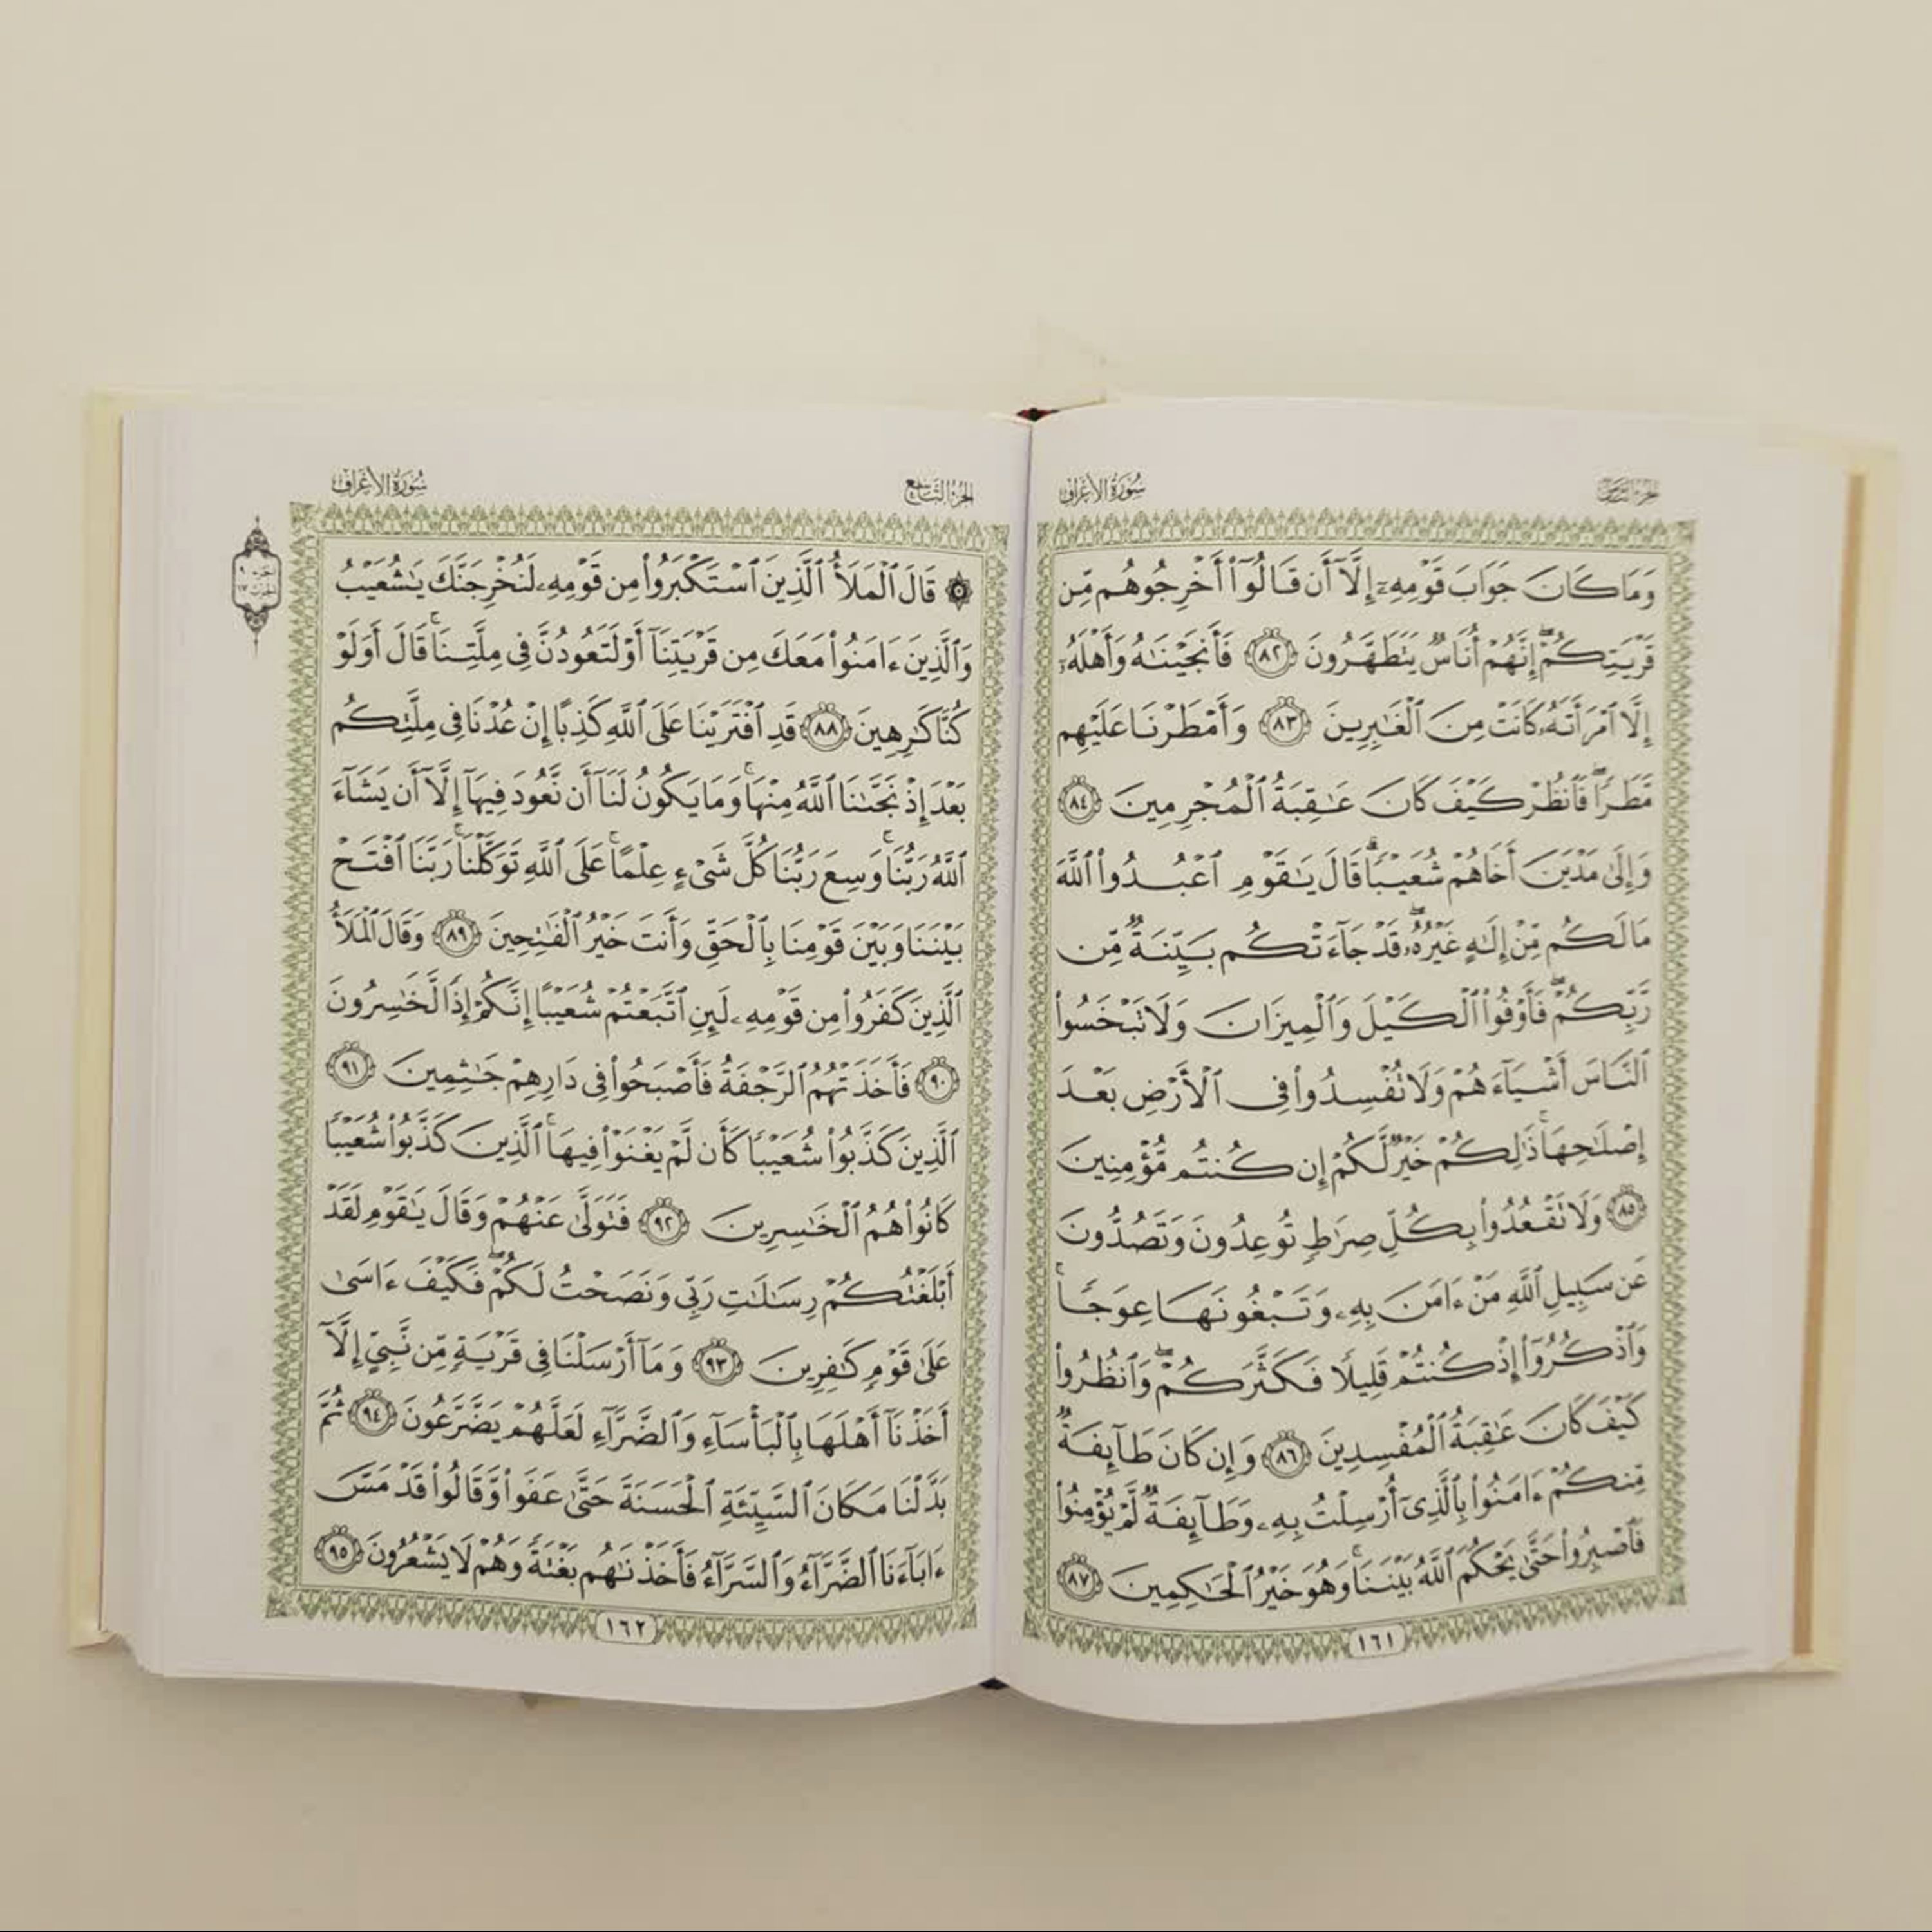 سُورَةُ الأَعْرَافِ
وَمَا كَانَ جَوَابَ قَوْمِهِۦٓ إِلَّآ أَن قَالُوٓا۟ أَخْرِجُوهُم مِّن
قَرْيَتِكُمْ ۖ إِنَّهُمْ أُنَاسٌ يَتَطَهَّرُونَ ٨٢ فَأَنجَيْنَـٰهُ وَأَهْلَهُۥٓ
إِلَّا ٱمْرَأَتَهُۥ كَانَتْ مِنَ ٱلْغَـٰبِرِينَ ٨٣ وَأَمْطَرْنَا عَلَيْهِم
مَّطَرًا ۖ فَٱنظُرْ كَيْفَ كَانَ عَـٰقِبَةُ ٱلْمُجْرِمِينَ ٨٤
وَإِلَىٰ مَدْيَنَ أَخَاهُمْ شُعَيْبًا ۗ قَالَ يَـٰقَوْمِ ٱعْبُدُوا۟ ٱللَّهَ
مَا لَكُم مِّنْ إِلَـٰهٍ غَيْرُهُۥ ۖ قَدْ جَآءَتْكُم بَيِّنَةٌ مِّن
رَّبِّكُمْ ۖ فَأَوْفُوا۟ ٱلْكَيْلَ وَٱلْمِيزَانَ وَلَا تَبْخَسُوا۟
ٱلنَّاسَ أَشْيَآءَهُمْ وَلَا تُفْسِدُوا۟ فِى ٱلْأَرْضِ بَعْدَ
إِصْلَـٰحِهَا ۚ ذَٰلِكُمْ خَيْرٌ لَّكُمْ إِن كُنتُم مُّؤْمِنِينَ
٨٥ وَلَا تَقْعُدُوا۟ بِكُلِّ صِرَٰطٍ تُوعِدُونَ وَتَصُدُّونَ
عَن سَبِيلِ ٱللَّهِ مَنْ ءَامَنَ بِهِۦ وَتَبْغُونَهَا عِوَجًا ۚ
وَٱذْكُرُوٓا۟ إِذْ كُنتُمْ قَلِيلًا فَكَثَّرَكُمْ ۖ وَٱنظُرُوا۟
كَيْفَ كَانَ عَـٰقِبَةُ ٱلْمُفْسِدِينَ ٨٦ وَإِن كَانَ طَآئِفَةٌ
مِّنكُمْ ءَامَنُوا۟ بِٱلَّذِىٓ أُرْسِلْتُ بِهِۦ وَطَآئِفَةٌ لَّمْ يُؤْمِنُوا۟
فَٱصْبِرُوا۟ حَتَّىٰ يَحْكُمَ ٱللَّهُ بَيْنَنَا ۚ وَهُوَ خَيْرُ ٱلْحَـٰكِمِينَ ٨٧
١٦١
الجُزْءُ التَّاسِعُ
سُورَةُ الأَعْرَافِ
۞ قَالَ ٱلْمَلَأُ ٱلَّذِينَ ٱسْتَكْبَرُوا۟ مِن قَوْمِهِۦ لَنُخْرِجَنَّكَ يَـٰشُعَيْبُ
وَٱلَّذِينَ ءَامَنُوا۟ مَعَكَ مِن قَرْيَتِنَآ أَوْ لَتَعُودُنَّ فِى مِلَّتِنَا ۚ قَالَ أَوَلَوْ
كُنَّا كَـٰرِهِينَ ٨٨ قَدِ ٱفْتَرَيْنَا عَلَى ٱللَّهِ كَذِبًا إِنْ عُدْنَا فِى مِلَّتِكُم
بَعْدَ إِذْ نَجَّىٰنَا ٱللَّهُ مِنْهَا ۚ وَمَا يَكُونُ لَنَآ أَن نَّعُودَ فِيهَآ إِلَّآ أَن يَشَآءَ
ٱللَّهُ رَبُّنَا ۚ وَسِعَ رَبُّنَا كُلَّ شَىْءٍ عِلْمًا ۚ عَلَى ٱللَّهِ تَوَكَّلْنَا ۚ رَبَّنَا ٱفْتَحْ
بَيْنَنَا وَبَيْنَ قَوْمِنَا بِٱلْحَقِّ وَأَنتَ خَيْرُ ٱلْفَـٰتِحِينَ ٨٩ وَقَالَ ٱلْمَلَأُ
ٱلَّذِينَ كَفَرُوا۟ مِن قَوْمِهِۦ لَئِنِ ٱتَّبَعْتُمْ شُعَيْبًا إِنَّكُمْ إِذًا لَّخَـٰسِرُونَ
٩٠ فَأَخَذَتْهُمُ ٱلرَّجْفَةُ فَأَصْبَحُوا۟ فِى دَارِهِمْ جَـٰثِمِينَ ٩١
ٱلَّذِينَ كَذَّبُوا۟ شُعَيْبًا كَأَن لَّمْ يَغْنَوْا۟ فِيهَا ۚ ٱلَّذِينَ كَذَّبُوا۟ شُعَيْبًا
كَانُوا۟ هُمُ ٱلْخَـٰسِرِينَ ٩٢ فَتَوَلَّىٰ عَنْهُمْ وَقَالَ يَـٰقَوْمِ لَقَدْ
أَبْلَغْتُكُمْ رِسَـٰلَـٰتِ رَبِّى وَنَصَحْتُ لَكُمْ ۖ فَكَيْفَ ءَاسَىٰ
عَلَىٰ قَوْمٍ كَـٰفِرِينَ ٩٣ وَمَآ أَرْسَلْنَا فِى قَرْيَةٍ مِّن نَّبِىٍّ إِلَّآ
أَخَذْنَآ أَهْلَهَا بِٱلْبَأْسَآءِ وَٱلضَّرَّآءِ لَعَلَّهُمْ يَضَّرَّعُونَ ٩٤ ثُمَّ
بَدَّلْنَا مَكَانَ ٱلسَّيِّئَةِ ٱلْحَسَنَةَ حَتَّىٰ عَفَوا۟ وَّقَالُوا۟ قَدْ مَسَّ
ءَابَآءَنَا ٱلضَّرَّآءُ وَٱلسَّرَّآءُ فَأَخَذْنَـٰهُم بَغْتَةً وَهُمْ لَا يَشْعُرُونَ ٩٥
١٦٢